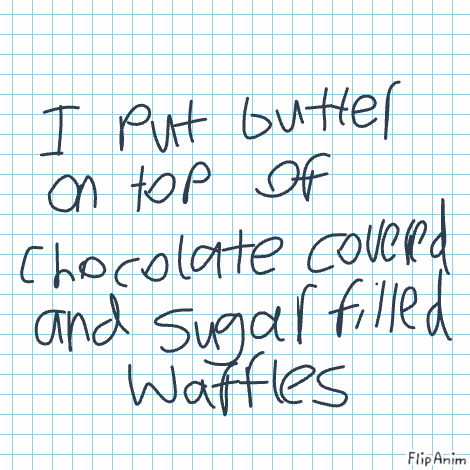 I put butter
on top of
chocolate covered
and sugar filled
waffles
FlipAnim